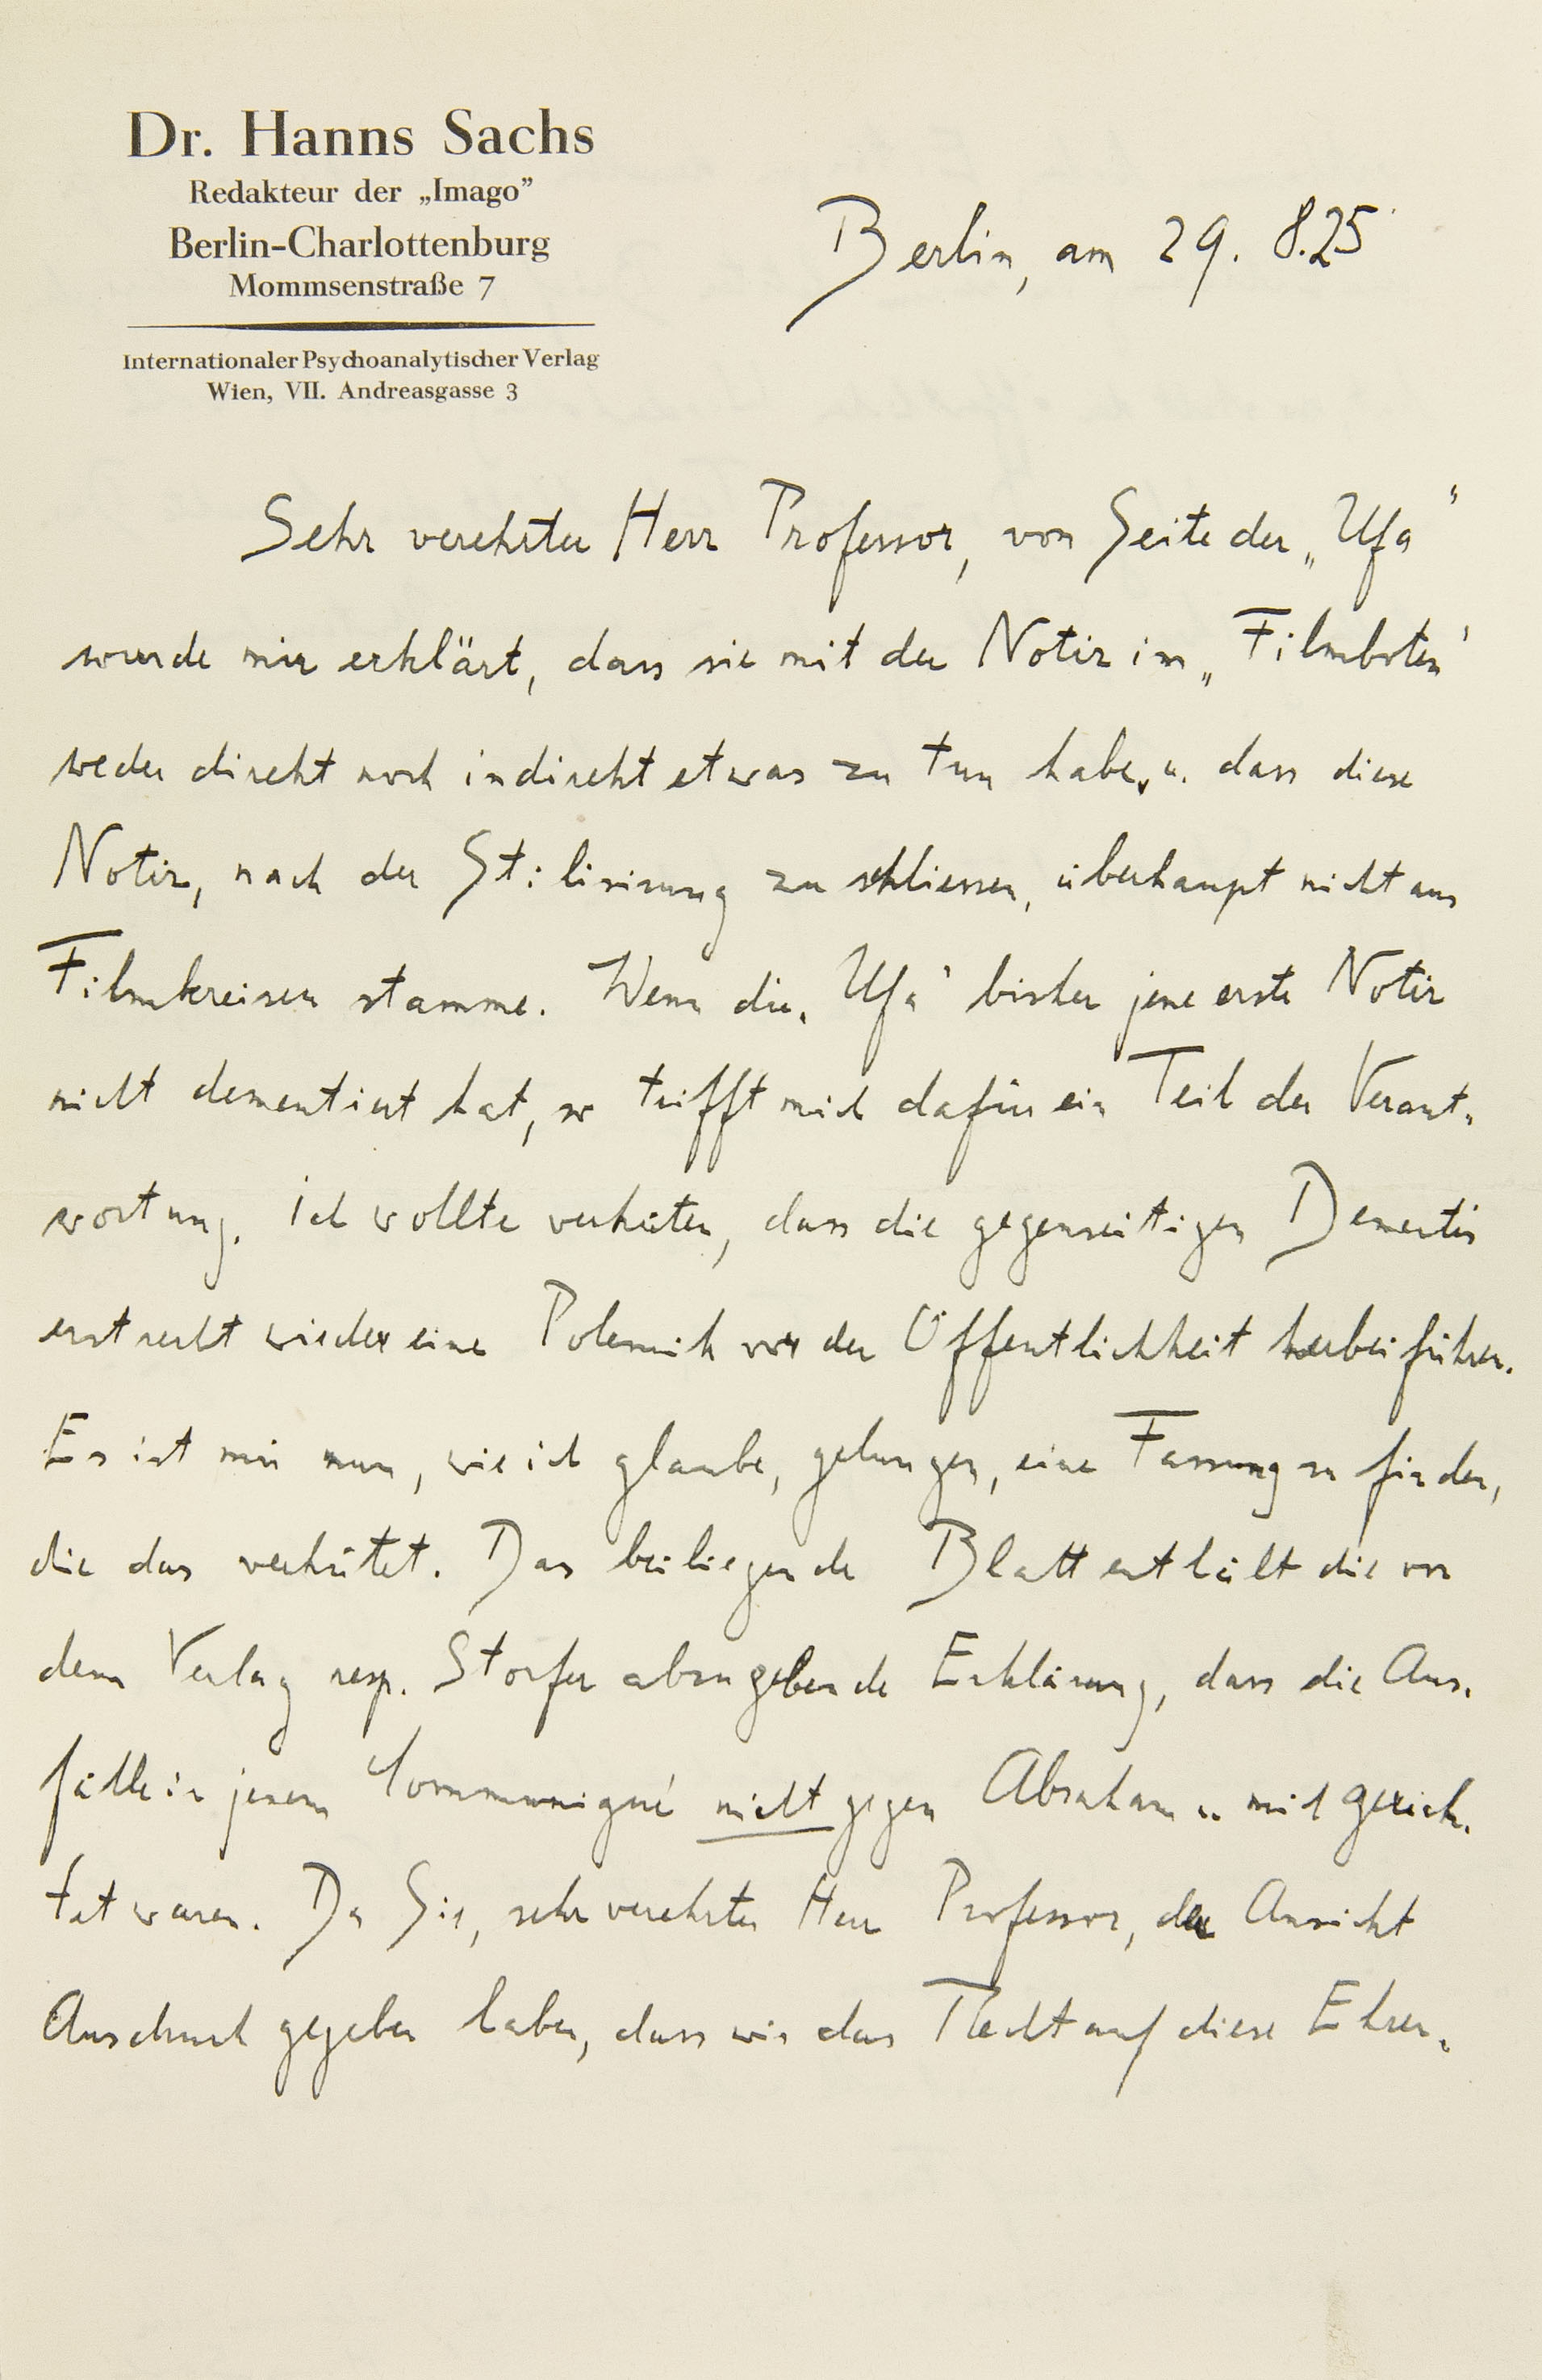 Dr. Hanns Sachs
Redakteur der „Imago”
Berlin-Charlottenburg
Mommsenstraße 7
Internationaler Psychoanalytischer Verlag
Wien, VII. Andreasgasse 3
Berlin, am 29. 8.25
Sehr verehrter Herr Professor, von Seite der „Ufa“
wurde mir erklärt, dass sie mit der Notiz im „Filmboten“
weder direkt noch indirekt etwas zu tun habe, u. dass diese
Notiz, nach der Stilisirung zu schliessen, überhaupt nicht aus
Filmkreisen stamme. Wenn die „Ufa“ bisher jene erste Notiz
nicht dementiert hat, so trifft mich dafür ein Teil der Verant-
wortung. Ich wollte verhüten, dass die gegenseitigen Dementis
erst recht wieder eine Polemik vor der Öffentlichkeit herbeiführen.
Es ist mir nun, wie ich glaube, gelungen, eine Fassung zu finden,
die das verhütet. Das beiliegende Blatt enthält die von
dem Verlag resp. Storfer abzugebende Erklärung, dass die Aus-
fälle in jenem Communiqué nicht gegen Abraham u. mich gerich-
tet waren. Da Sie, sehr verehrter Herr Professor, der Ansicht
Ausdruck gegeben haben, dass wir das Recht auf diese Ehren-